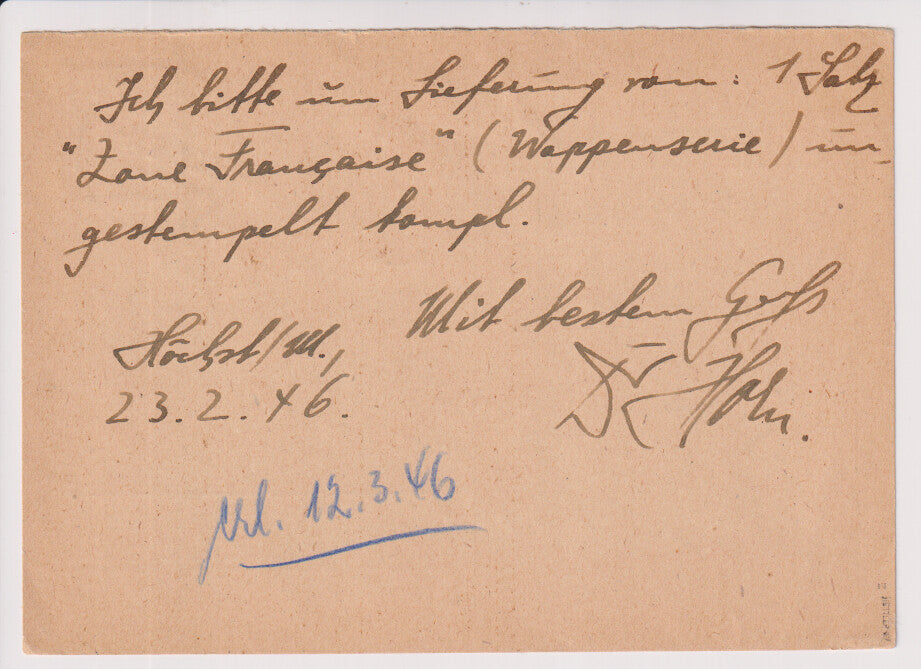 Ich bitte um Lieferung von: 1 Satz
"Zone Française" (Wappenserie) un-
gestempelt kompl.
Mit bestem Gruß
Höchst/M.,
23.2.46.
Dr Horn.
erl. 12.3.46